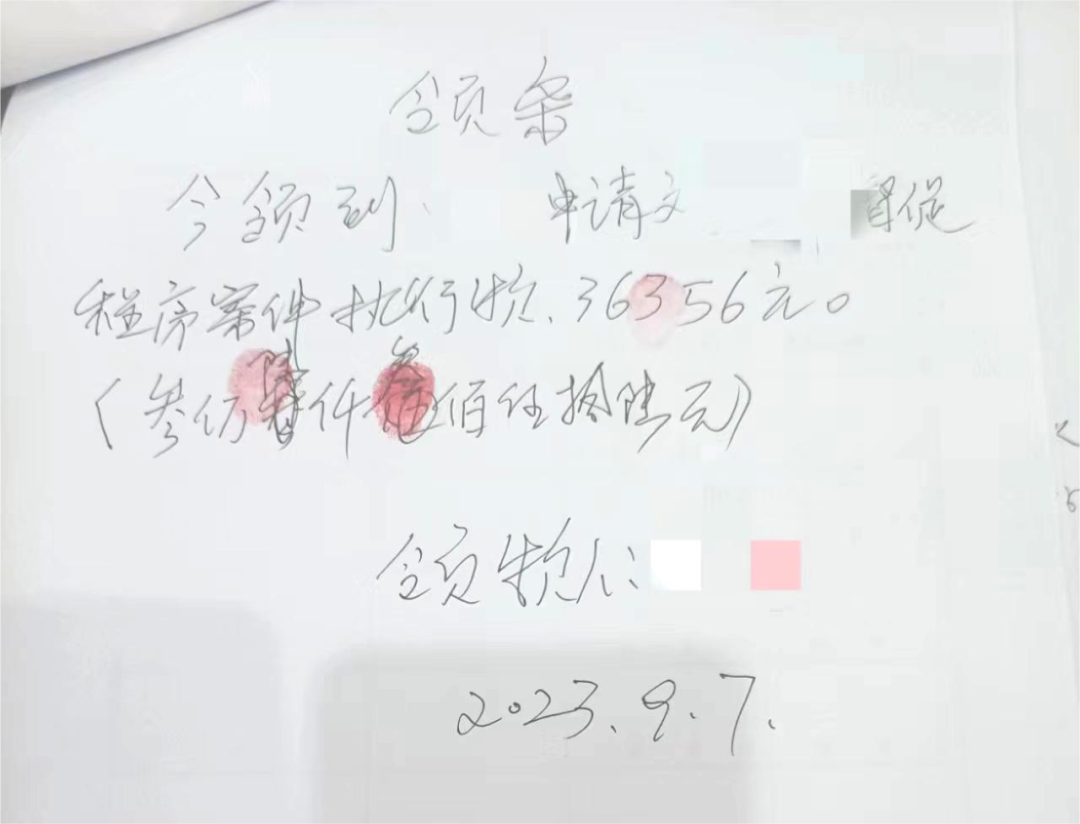 领条
今领到 申请支 督促
程序案件执行款.36356元。
(叁仟佰伍拾陆元)
领款人:
2023.9.7.